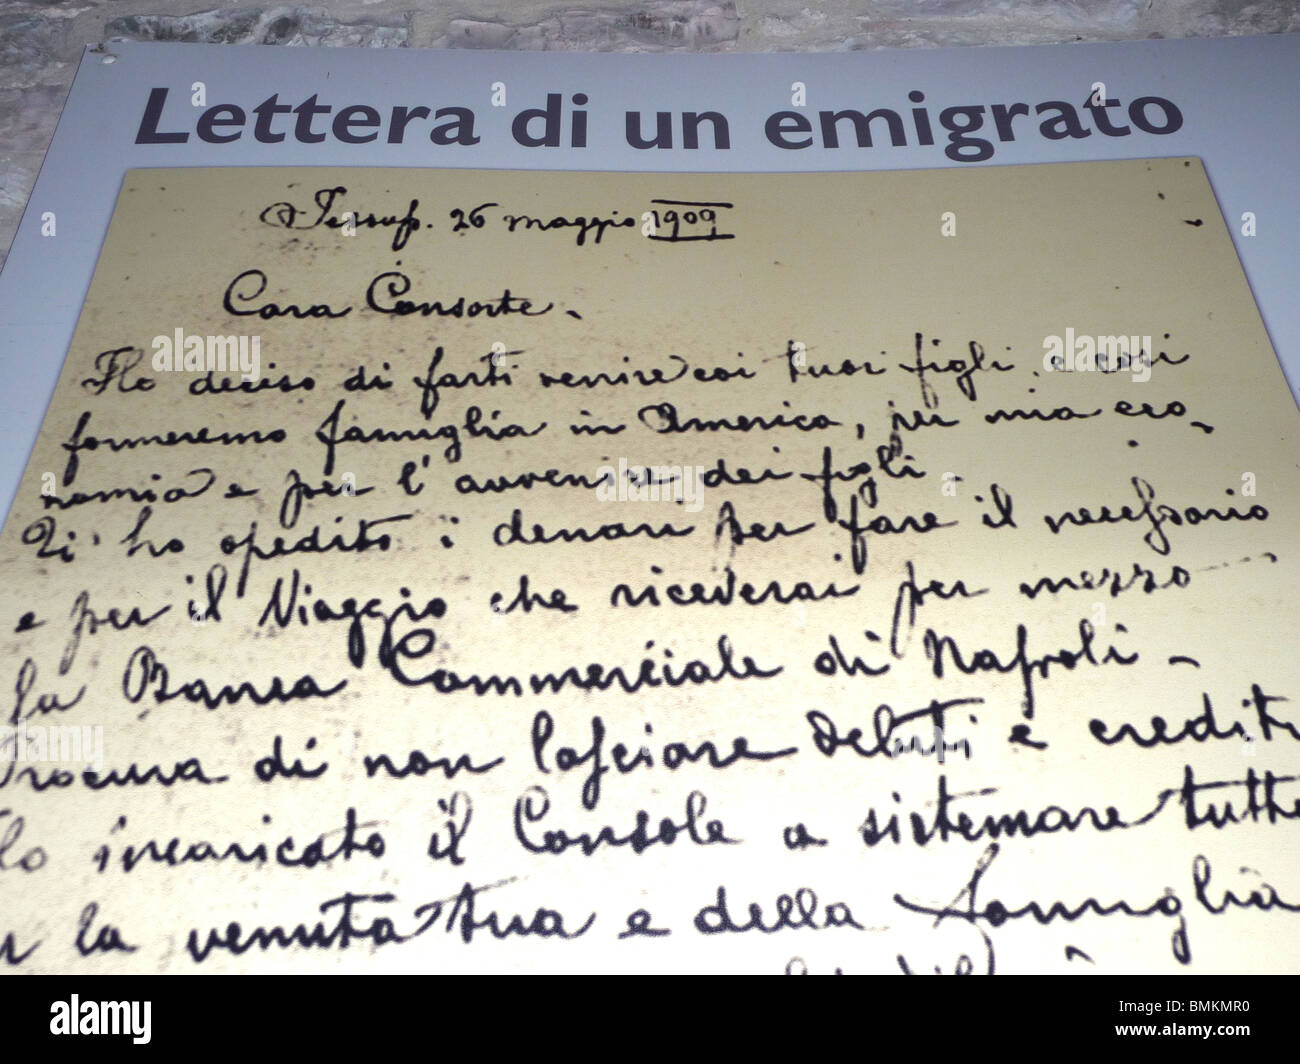 Lettera di un emigrato
26 maggio 1909
Cara Consorte.
Ho deciso di farti venire coi tuoi figli. e cosi
formeremo famiglia in America, per mia eco-
nomia e per l'avvenire dei figli.
Ti ho spedito i denari per fare il necessario
e per il Viaggio che riceverai per mezzo
la Banca Commerciale di Napoli -
Procura di non lasciare debiti e crediti
Ho incaricato il Console a sistemare tutto
la venuta tua e della famiglia
alamy
Image ID: BMKMR0
www.alamy.com